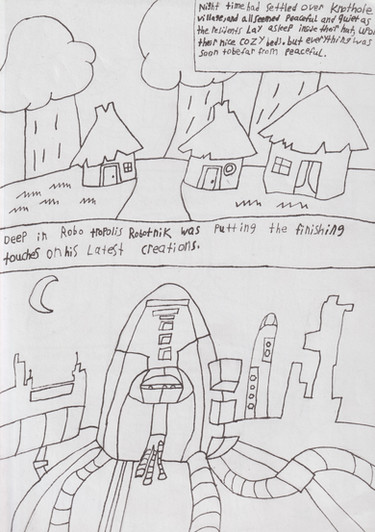 Night time had settled over Knothole
village, and all seemed Peaceful and quiet as
the residents Lay asleep inside their hut, upon
their nice cozy beds. but everything was
soon to be far from peaceful.
Deep in Robo tropolis Robotnik was putting the finishing
touches on his Latest creations.